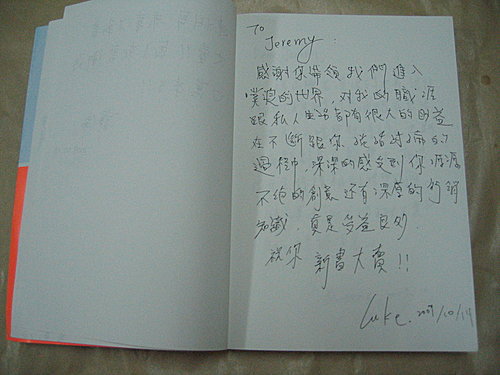 To
Jeremy:
感謝你帶領我們進入
噗浪的世界,對我的職涯
跟私人生活都有很大的助益
在不斷跟你
過程中,深深的感受到你涯涯
不絕的創意還有深厚的行銷
知識,真是受益良多.
祝你 新書大賣!!
Luke. 2009/10/14